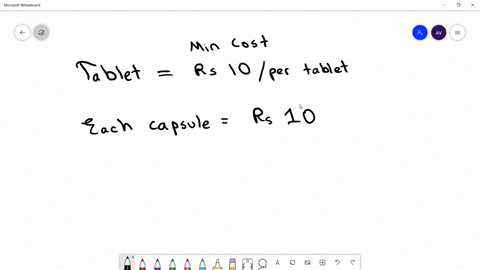 Microsoft Whiteboard
AV
Min Cost
Tablet = Rs 10 / per tablet
Each capsule = Rs 10